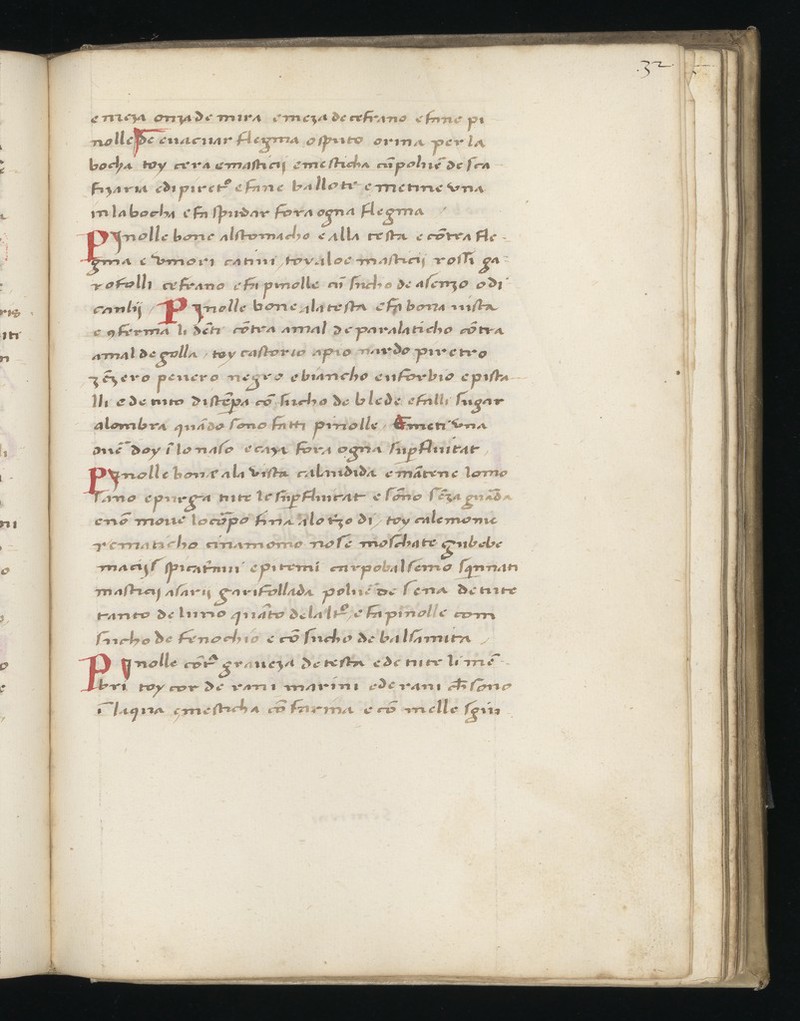 .32
e meza onza de mira e meza de cefrano e fane pi
nolle De euacuar flegma o sputo orina per la
bocha toy cera e masticij e mesticha cū poluē de sca
fizaria e di piretº e fane ballote e metine vna
in la bocha e fa spudar fora ogna flegma
Pinolle bone al stomacho e alla testa e cōtra fle-
gma e vmori catiui / toy aloe masticij rossi ga-
rofolli cefrano e fa pinolle cū sucho de asenzo o di
caulij / Pinolle bone ala testa e fa bona uista
e 9ferma li dēti cōtra amal de paralaticho cōtra
amal de golla / toy castorio apio nardo piretro
zēzero peuero negro e biancho euforbio e pista
lli e de tuto distēpa cō sucho de blede e falli sugar
alombra quādo sono fatti pinolle / E meti vna
ouē doy ī lo naso e caza fora ogna supfluitat
Pinolle bone ala vista e mātene lomo
sano e purga tute le supfluitat e sōno sēza guāda
e nō moue lo cōpo fina alo tzo di / toy calemonie
rematicho cinamomo nose moschate gubebe
macijs e pitemi carpobalsemo sqinnati
masticij asarij garifollada poluē de sena de tute
tanto de luno quāto delaltº / e fa pinolle com
sucho de fenochio e cō sucho de balsamita
Pinolle cōtª graueza de testa e de tute li mē-
bri toy cor de rani marini e de rani ch sono
ī laqua e mesticha cō farina e cō melle